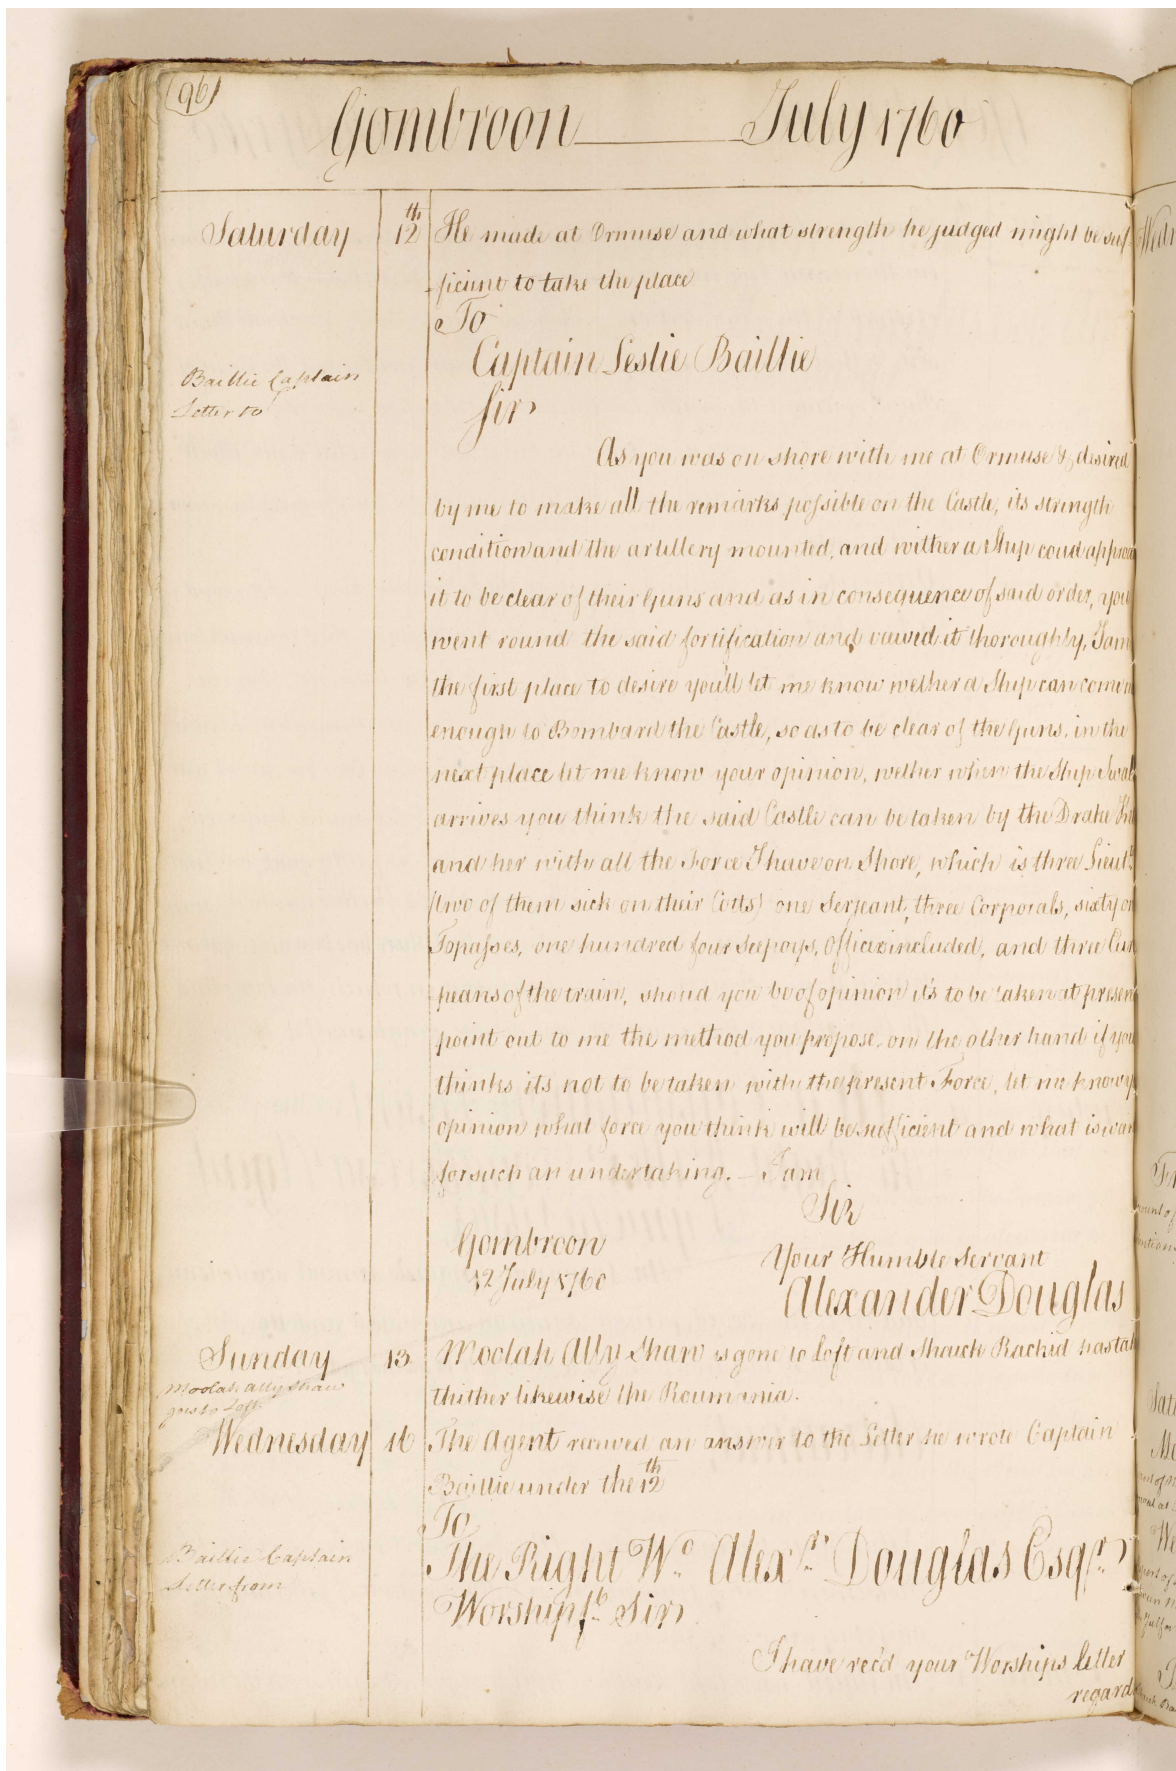 96
Gombroon July 1760
Saturday 12th He made at Ormuse and what strength he judged might be suf
ficient to take the place
To
Captain Leslie Baillie
Baillie Captain
Letter to
Sir
As you was on shore with me at Ormuse & desired
by me to make all the remarks possible on the Castle, its strength
condition and the artillery mounted, and wither a Ship coud approa
it to be clear of their Guns and as in consequence of said order, you
went round the said fortification and vawed it thoroughly, I am
the first place to desire you'll let me know wether a Ship can come
enough to Bombard the Castle, so as to be clear of the Guns, in the
next place let me know your opinion, wether when the Ship Swal
arrives you think the said Castle can be taken by the Drake
and her with all the Force I have on Shore, which is three Lieuts
(two of them sick on their Cotts) one Serjeant, three Corporals, sixty
Topasses, one hundred four Seepoys, Officers included, and three Eur
peans of the train, shoud you be of opinion it's to be taken at presen
point out to me the method you propose, on the other hand if you
thinks its not to be taken with the present Force, let me know y
opinion what force you think will be sufficient and what is wan
for such an undertaking. – I am
Sir
Gombroon Your Humble Servant
12 July 1760 Alexander Douglas
Sunday 13 Moolah Ally Shaw is gone to Loft and Shaick Rachid has tak
Moolah Ally Shaw
goes to Loft
thither likewise the Roumania.
Wednesday 16 The Agent received an answer to the Letter he wrote Captain
Baillie under the 12th
To
Baillie Captain
Letter from
The Right Wo. Alexr. Douglas Esqr.
Worshipfl. Sir
I have rec'd your Worships letter
regard